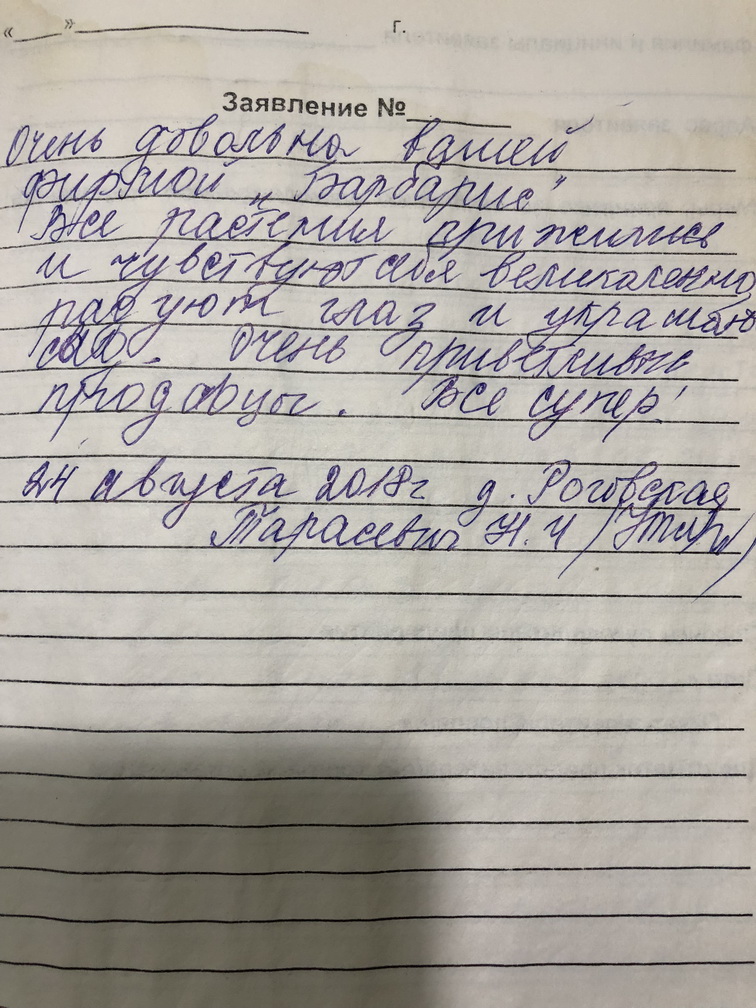 «___»______________ г.
Заявление №______
Очень довольна вашей
фирмой „Барбарис"
Все растения прижились
и чувствуют себя великаленно,
радуют глаз и украшают
сад. Очень приветливые
продавцы. Все супер!
24 августа 2018г д. Роговская
Тарасевич Н.Ч